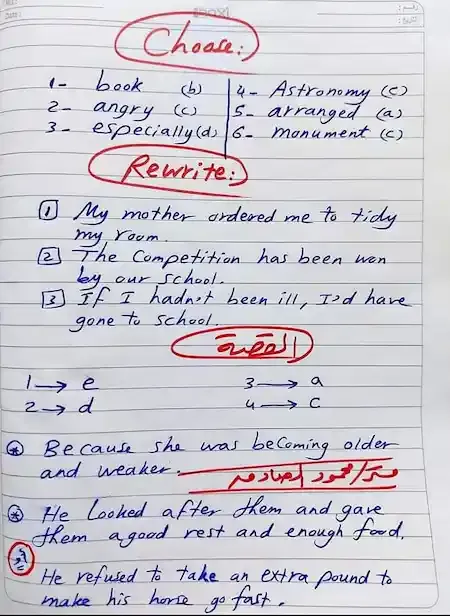 Choose:
1- book (b)
2- angry (c)
3- especially (d)
4- Astronomy (c)
5- arranged (a)
6- monument (c)
Rewrite:
1 My mother ordered me to tidy
my room.
2 The Competition has been won
by our school.
3 If I hadn't been ill, I'd have
gone to school.
القصة
1 → e
2 → d
3 → a
4 → c
Because she was becoming older
and weaker.
مستر/محمود
He looked after them and gave
them a good rest and enough food.
He refused to take an extra pound to
make his horse go fast.